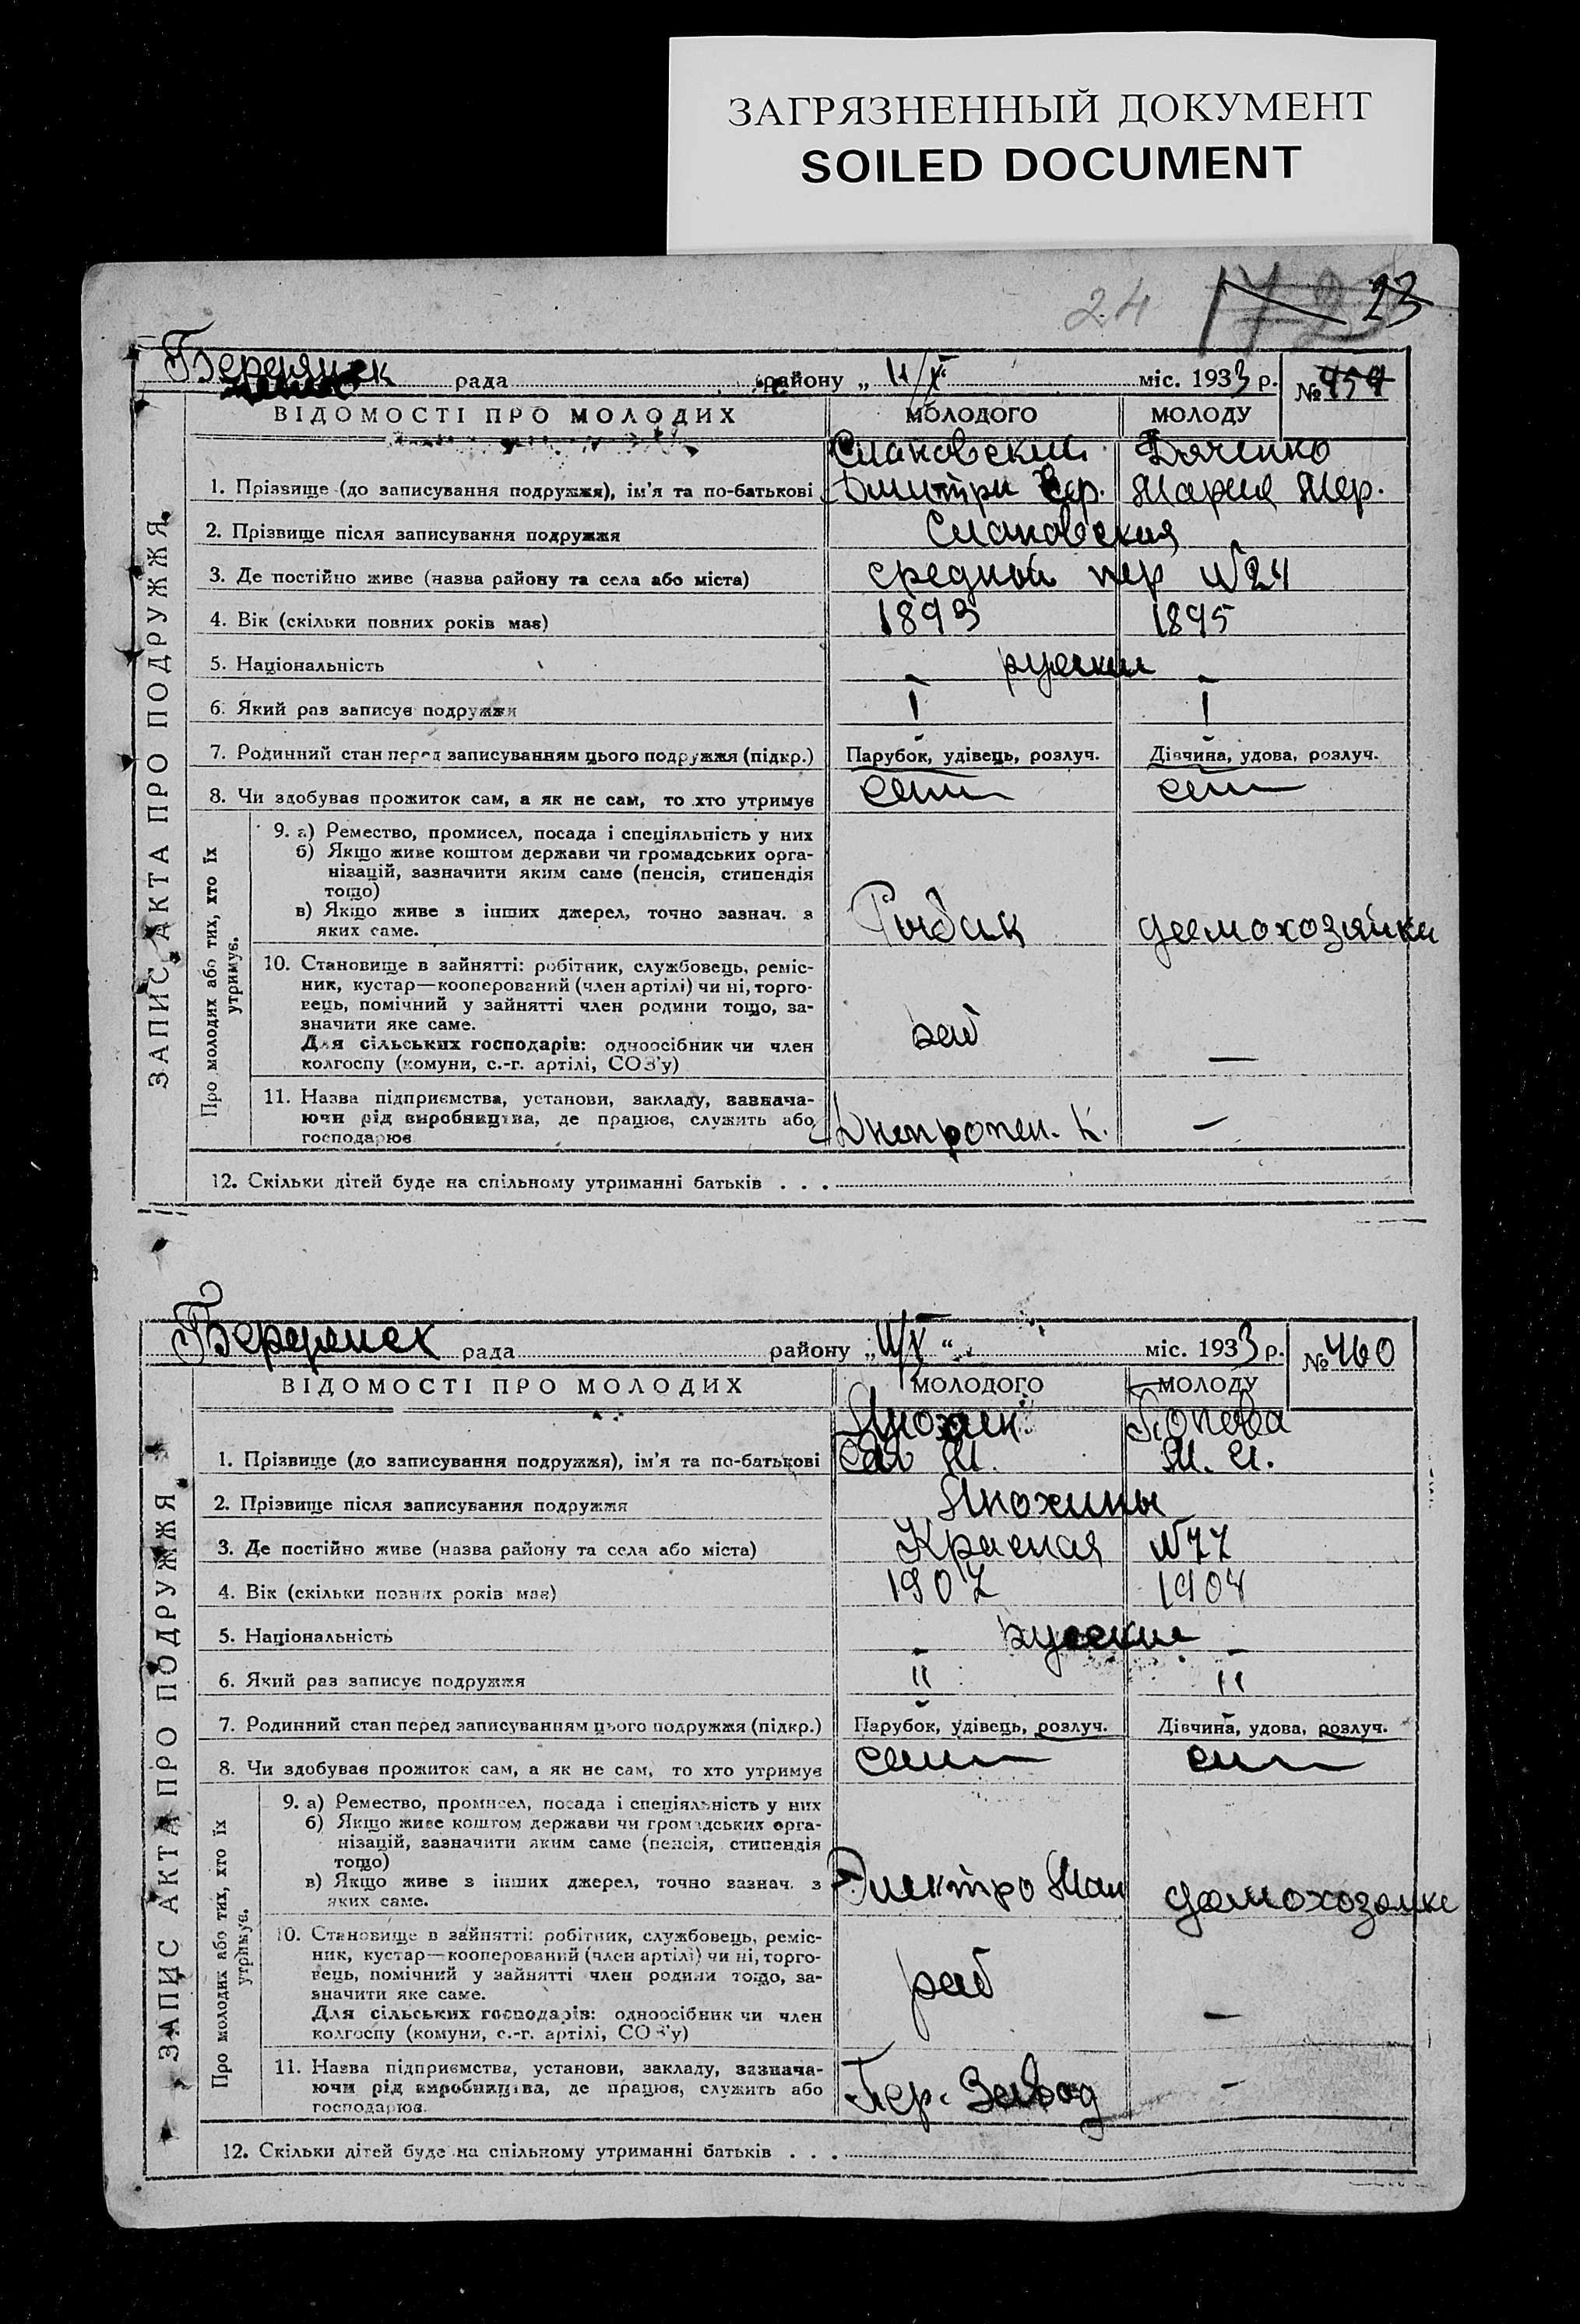 ЗАГРЯЗНЕННЫЙ ДОКУМЕНТ
SOILED DOCUMENT
24 23
Бердянск рада району „ 11/X міс. 1933 р. № 459
ВІДОМОСТІ ПРО МОЛОДИХ МОЛОДОГО МОЛОДУ
ЗАПИС АКТА ПРО ПОДРУЖЖЯ.
Дяченко
1. Прізвище (до записування подружжя), ім'я та по-батькові Дмитри Мария
2. Прізвище після записування подружжя
3. Де постійно живе (назва району та села або міста) средной пер №24
4. Вік (скільки повних років має) 1893 1895
5. Національність руские
6. Який раз записує подружжя I I
7. Родинний стан перед записуванням цього подружжя (підкр.) Парубок, удівець, розлуч. Дівчина, удова, розлуч.
8. Чи здобував прожиток сам, а як не сам, то хто утримує сам сам
Про молодих або тих, хто їх утримує.
9. а) Ремество, промисел, посада і спеціяльність у них
б) Якщо живе коштом держави чи громадських орга-
нізацій, зазначити яким саме (пенсія, стипендія
тощо)
в) Якщо живе з інших джерел, точно зазнач. з
яких саме. Рыбак домохозяйка
10. Становище в зайнятті: робітник, службовець, реміс-
ник, кустар—кооперований (член артілі) чи ні, торго-
вець, помічний у зайнятті член родини тощо, за-
значити яке саме.
Для сільських господарів: одноосібник чи член
колгоспу (комуни, с.-г. артілі, СОЗ'у) раб —
11. Назва підприємства, установи, закладу, зазнача-
ючи рід виробництва, де працює, служить або
господарює —
12. Скільки дітей буде на спільному утриманні батьків . . .
Бердянск рада району „ 11/X “ міс. 1933 р. № 460
ВІДОМОСТІ ПРО МОЛОДИХ МОЛОДОГО МОЛОДУ
ЗАПИС АКТА ПРО ПОДРУЖЖЯ.
Попова
1. Прізвище (до записування подружжя), ім'я та по-батькові М. И.
2. Прізвище після записування подружжя
3. Де постійно живе (назва району та села або міста) Красная №77
4. Вік (скільки повних років має) 1907 1904
5. Національність руские
6. Який раз записує подружжя II II
7. Родинний стан перед записуванням цього подружжя (підкр.) Парубок, удівець, розлуч. Дівчина, удова, розлуч.
8. Чи здобував прожиток сам, а як не сам, то хто утримує сам сам
Про молодих або тих, хто їх утримує.
9. а) Ремество, промисел, посада і спеціяльність у них
б) Якщо живе коштом держави чи громадських орга-
нізацій, зазначити яким саме (пенсія, стипендія
тощо)
в) Якщо живе з інших джерел, точно зазнач. з
яких саме. домохозяйка
10. Становище в зайнятті: робітник, службовець, реміс-
ник, кустар—кооперований (член артілі) чи ні, торго-
вець, помічний у зайнятті член родини тощо, за-
значити яке саме.
Для сільських господарів: одноосібник чи член
колгоспу (комуни, с.-г. артілі, СОЗ'у) раб —
11. Назва підприємства, установи, закладу, зазнача-
ючи рід виробництва, де працює, служить або
господарює. Пер. Завод —
12. Скільки дітей буде на спільному утриманні батьків . . .